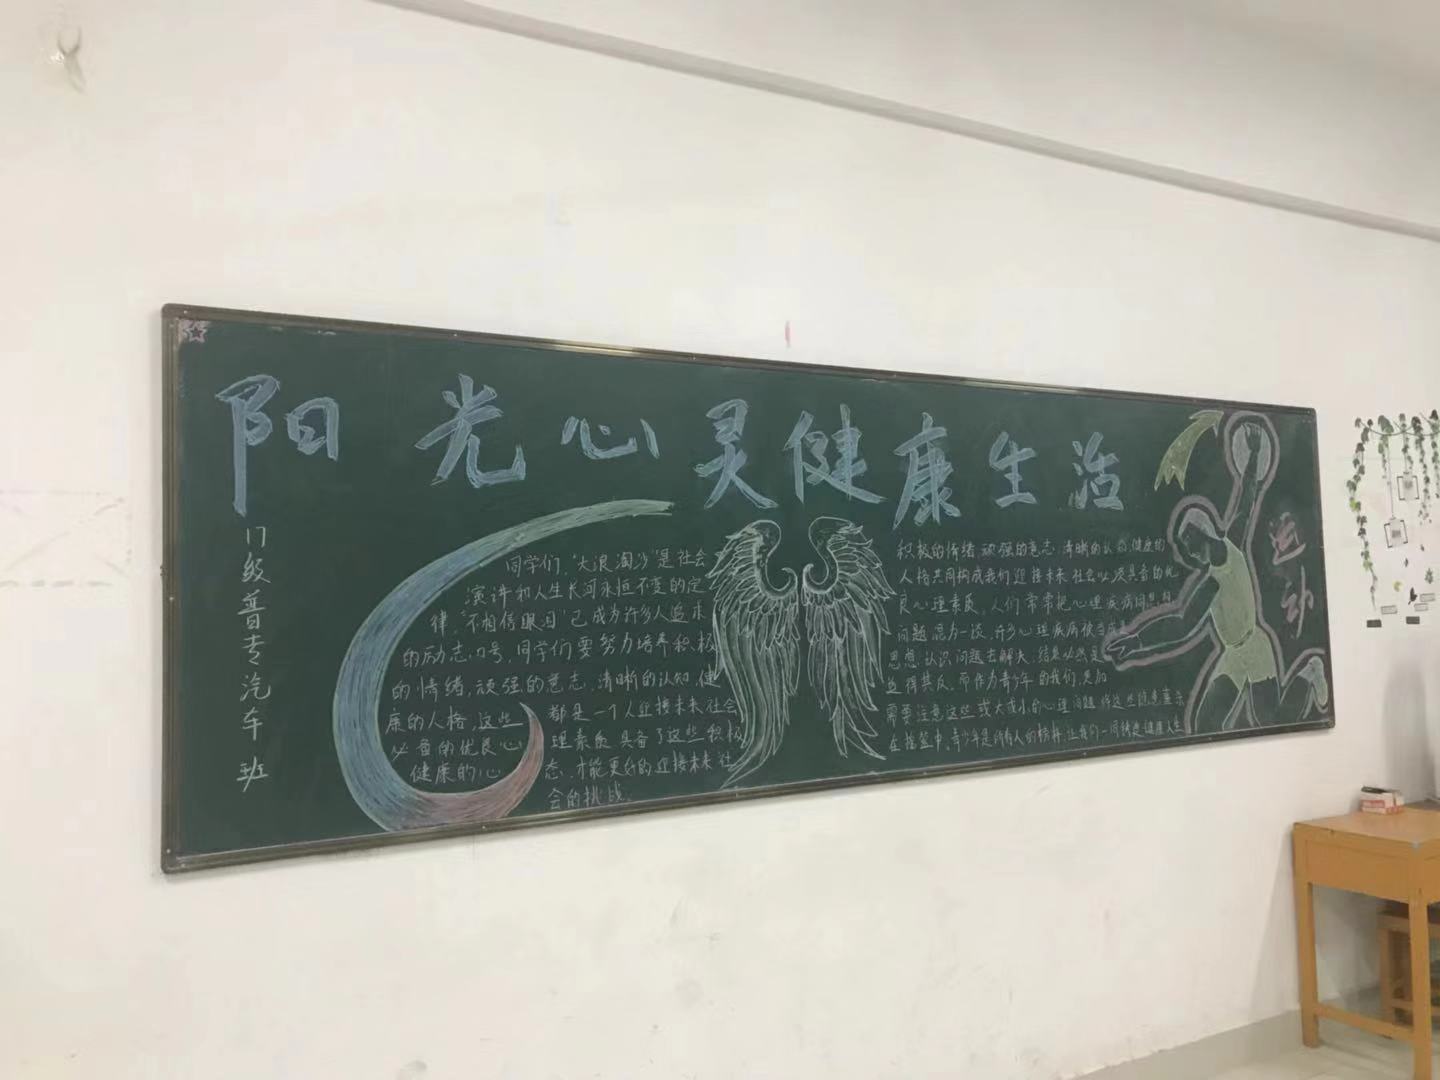 阳光心灵健康生活
17级普专汽车班
同学们，“大浪淘沙”是社会
演许和人生长河永恒不变的定
律，“不相信眼泪”已成为许多人追求
的励志口号，同学们要努力培养积极
的情绪，顽强的意志，清晰的认知，健
康的人格，这些都是一个人迎接未来社会
必备的优良心理素质，具备了这些积极
健康的心态，才能更好的迎接未来社
会的挑战。
积极的情绪 顽强的意志 清晰的认知 健康的
人格共同构成我们迎接未来社会必须具备的优
良心理素质，人们常常把心理疾病同思想
问题混为一谈，许多心理疾病被当成
思想认识问题去解决，结果必然是
适得其反，而作为青少年的我们，更加
需要注意这些或大或小的心理问题 将这些隐患
在摇篮中，青少年是所有人的榜样，让我们一同健康人生
运动